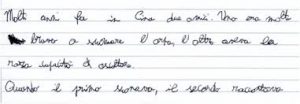 Molti anni fa in Cina due amici. Uno era molto
bravo a suonare l'arpa, l'altro aveva la
rara capacità di ascoltare.
Quando il primo suonava, il secondo raccontava